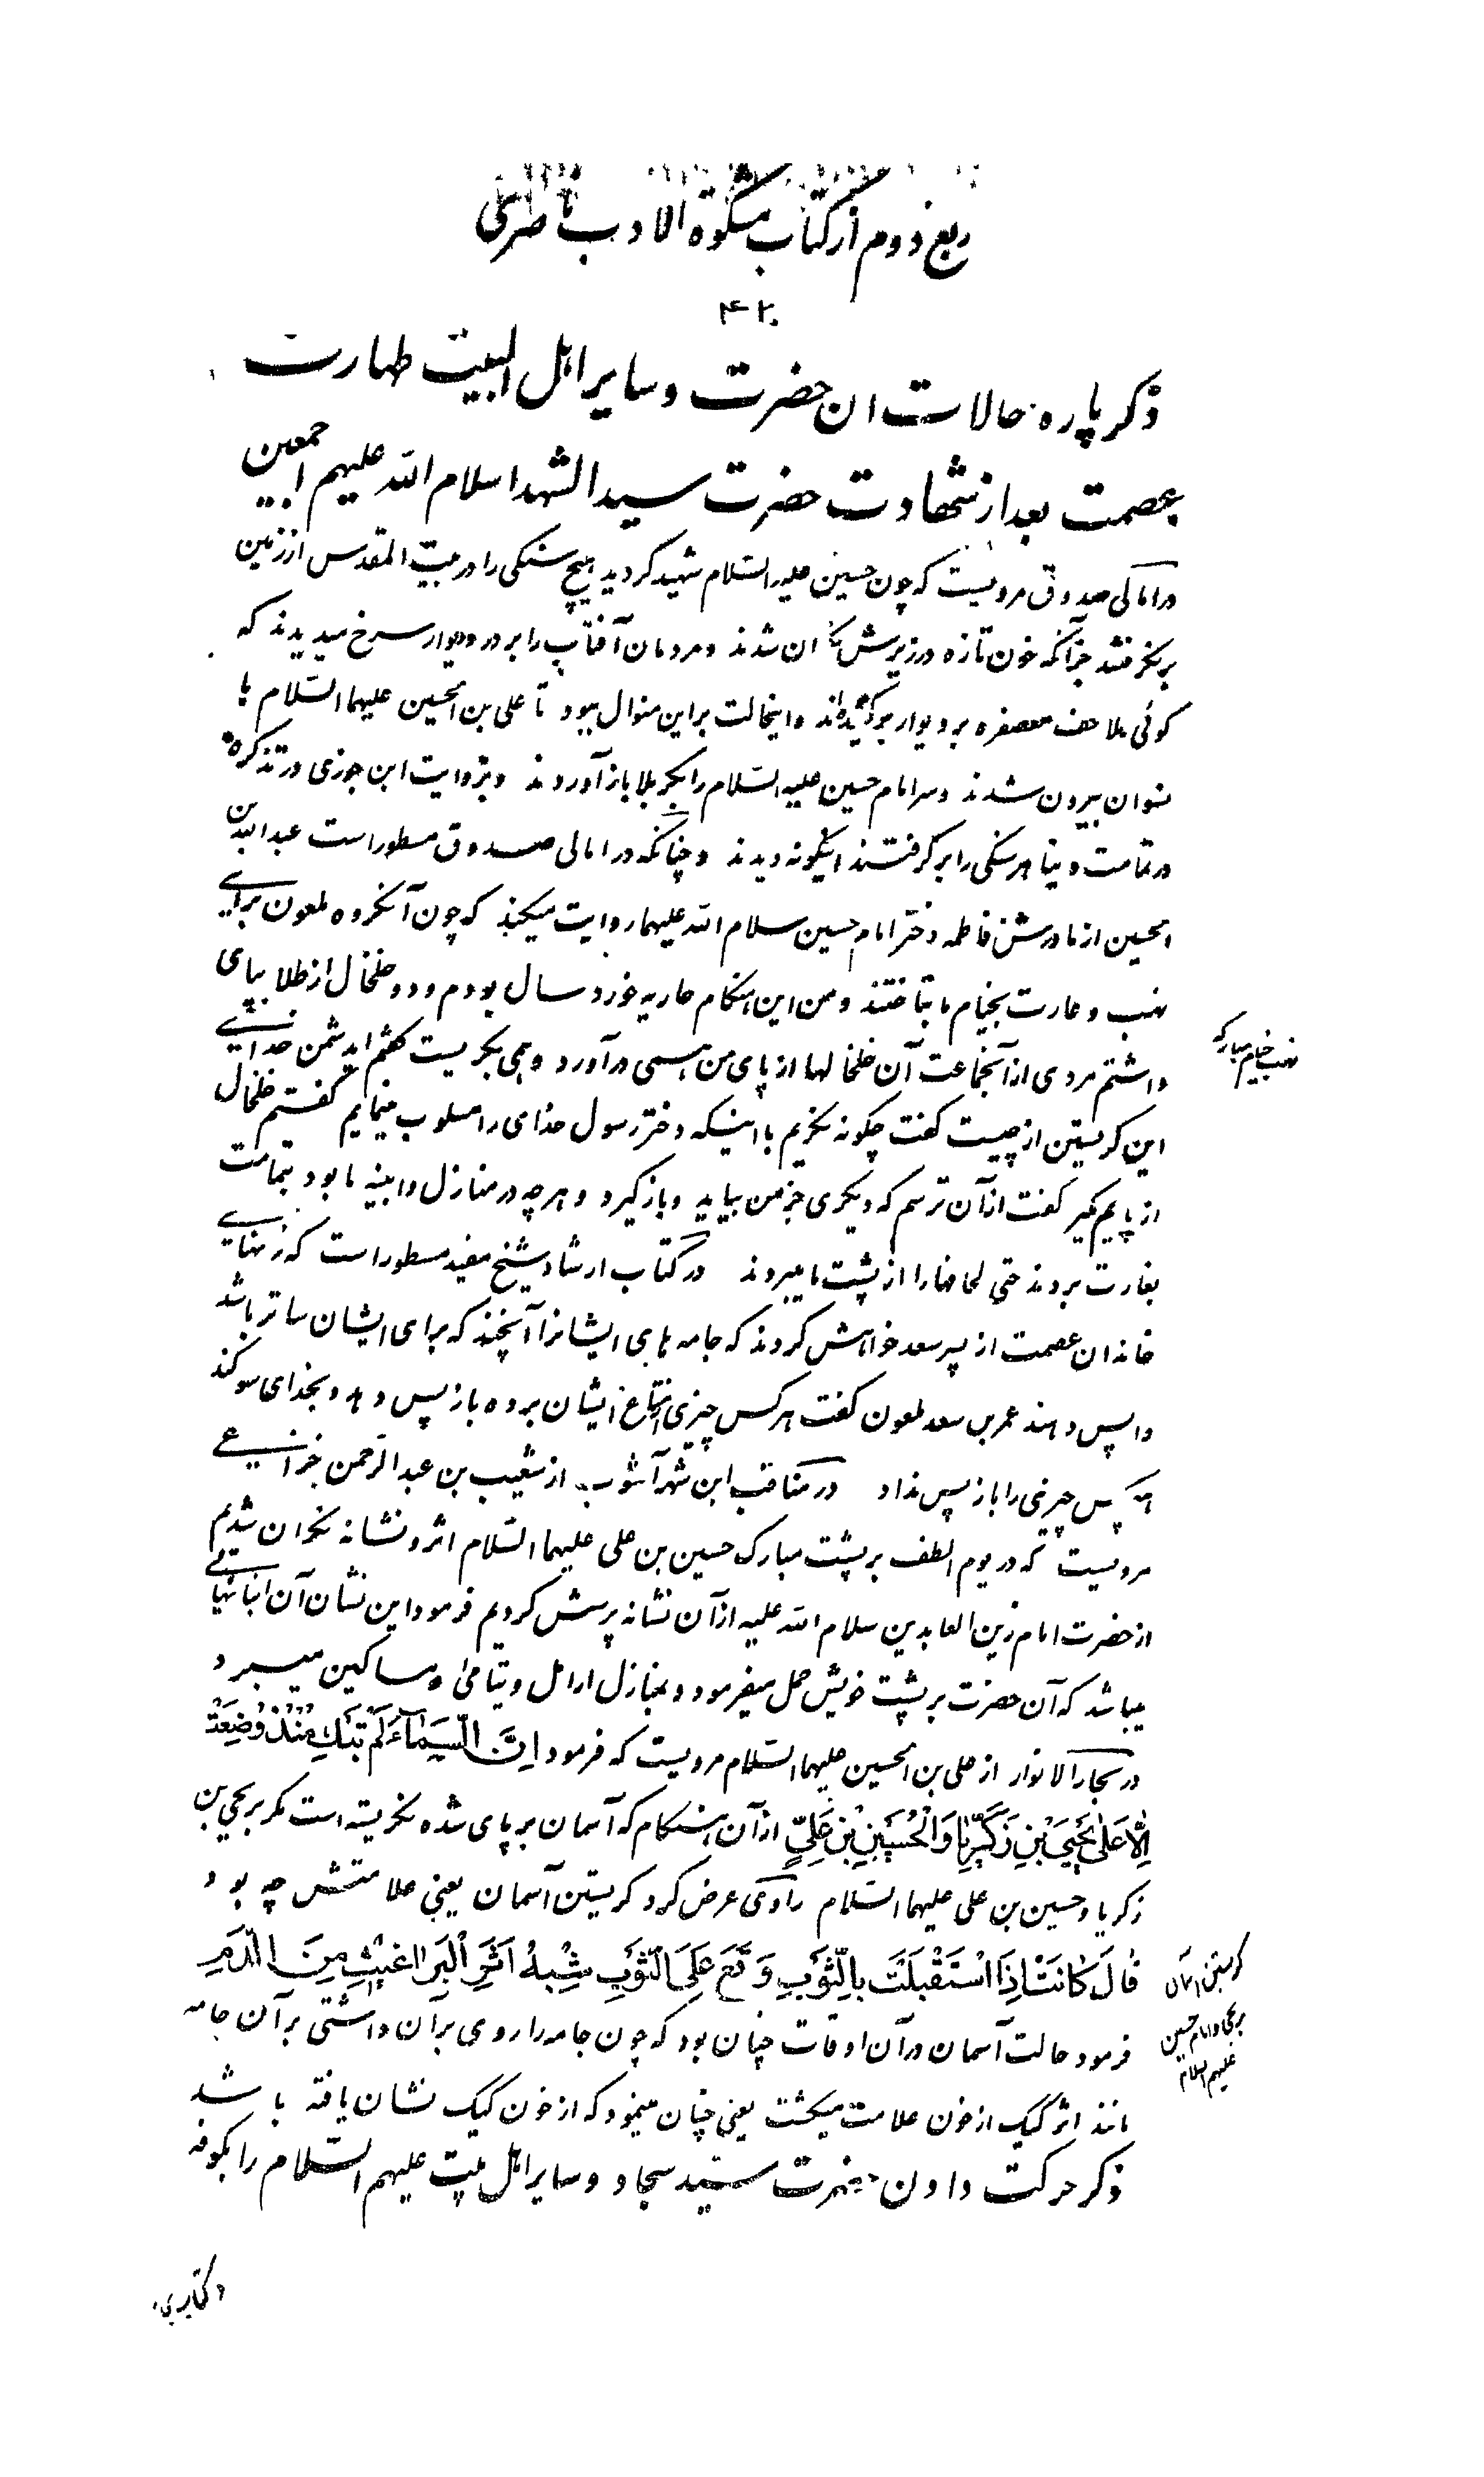 ربع دوم از کتاب مشکوة الادب ناصری
۴۲۰
ذکر پاره حالات ان حضرت و سایر اهل البیت طهارت
عصمت بعد از شهادت حضرت سید الشهدا سلام الله علیهم اجمعین
در امالی صدوق مرویست که چون حسین علیه السلام شهید کردید هیچ سنکی را در بیت المقدس از زمین
بر نکرفتند جز آنکه خون تازه در زیرش نکران شدند و مردمان آفتاب را بر در و دیوار سرخ میدیدند که
کوئی ملاحف معصفره بر دیوار برکشیده‌اند و اینحالت بر این منوال ببود تا علی بن الحسین علیهما السلام با
نسوان بیرون شدند و سر امام حسین علیه السلام را بکربلا باز آوردند و بروایت ابن جوزی در تذکره
در تمامت دنیا هر سنکی را بر کرفتند اینکونه دیدند و چنانکه در امالی صدوق مسطور است عبدالله بن
الحسین از مادرش فاطمه دختر امام حسین سلام الله علیهما روایت میکند که چون آنکروه ملعون برای
نهب و غارت بخیام ما بتاختند و من این هنکام جاریه خورد سال بودم و دو خلخال از طلا بپای
داشتم مردی از آنجماعت آن خلخالها از پای من همی در آورد و همی بکریست کفتم ایدشمن خدای
این کریستن از چیست کفت چکونه نکریم با اینکه دختر رسول خدای را مسلوب مینمایم کفتم خلخال
از پایم مکیر کفت از آن ترسم که دیکری جز من بیاید و باز کیرد و هر چه در منازل و ابنیه ما بود بتمامت
بغارت بردند حتی لحافها را از پشت ما میبردند در کتاب ارشاد شیخ مفید مسطور است که زنهای
خاندان عصمت از پسر سعد خواهش کردند که جامه های ایشانرا آنچند که برای ایشان ساتر باشد
واپس دهند عمر بن سعد ملعون کفت هر کس چیزی از متاع ایشان برده باز پس دهد و بخدای سوکند
هیچکس چیزی را باز پس نداد در مناقب ابن شهر آشوب از شعیب بن عبدالرحمن خزاعی
مرویست که در یوم الطف بر پشت مبارک حسین بن علی علیهما السلام اثر و نشانه نکران شدیم
از حضرت امام زین العابدین سلام الله علیه از آن نشانه پرسش کردیم فرمود این نشان آن انبانهائی
میباشد که آن حضرت بر پشت خویش حمل میفرمود و بمنازل ارامل و یتامی و مساکین میبرد
در بحار الانوار از علی بن الحسین علیهما السلام مرویست که فرمود اِنَّ السَّمٰآءَ لَمْ تَبْكِ مُنْذُ وُضِعَتْ
اِلّا عَلیٰ یَحْییَ بْنِ زَکَرِیّا وَالْحُسَیْنِ بْنِ عَلِیٍّ از آن هنکام که آسمان بر پای شده نکریسته است مکر بر یحیی بن
زکریا و حسین بن علی علیهما السلام راوی عرض کرد کریستن آسمان یعنی علامتش چه بود
قٰالَ کٰانَتْ اِذَا اسْتَقْبَلَتْ بِالثَّوْبِ وَقَعَ عَلَی الثَّوْبِ شِبْهُ اَثَرِ الْبَرٰاغیثِ مِنَ الدَّمِ
فرمود حالت آسمان در آن اوقات چنان بود که چون جامه را روی بر آن داشتی بر آن جامه
مانند اثر کیک از خون علامت میکشت یعنی چنان مینمود که از خون کیک نشان یافته باشد
ذکر حرکت دادن حضرت سید سجاد و سایر اهل بیت علیهم السلام را بکوفه
نهب خیام مبارکه
کریستن آسمان
بر یحیی و امام حسین
علیهم السلام